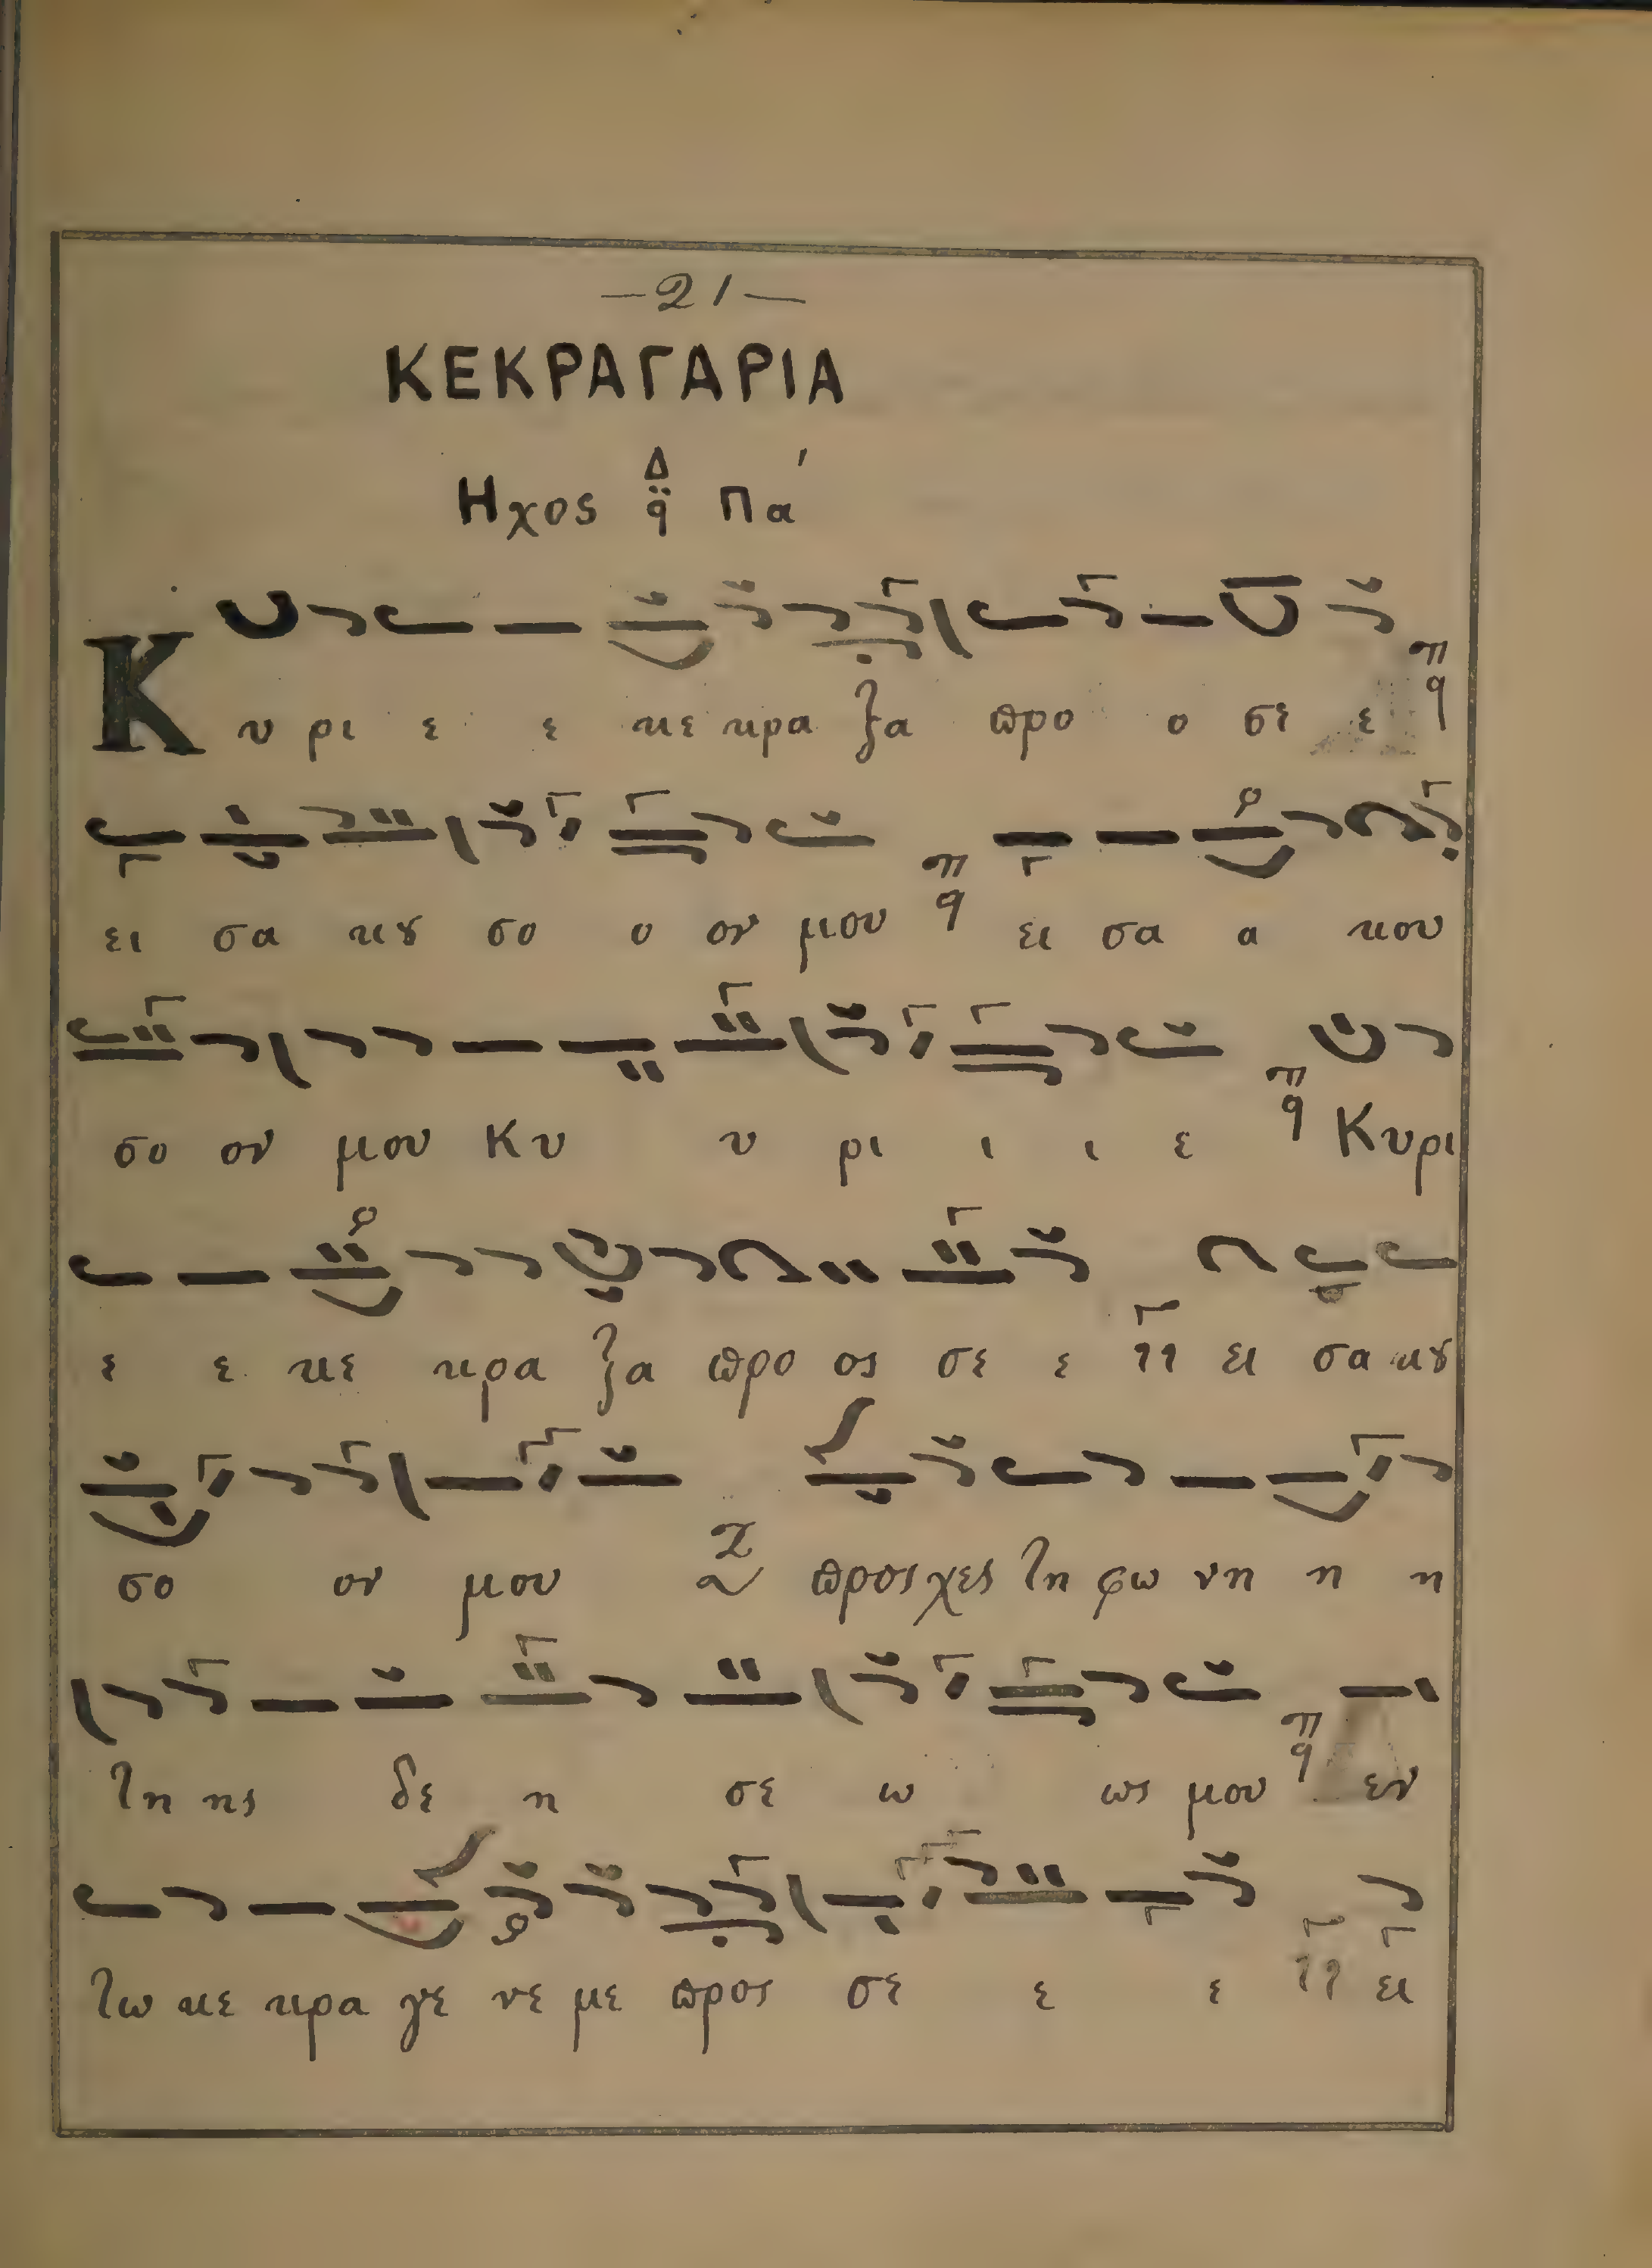 —21—
ΚΕΚΡΑΓΑΡΙΑ
Ηχος Πα
Κυ ρι ε ε κε κρα ξα προ ο σε ε
ει σα κȣ σο ο ον μου ει σα α κου
σο ον μου Κυ υ ρι ι ι ε Κυρι
ε ε κε κρα ξα προ ος σε ε ει σα κȣ
σο ον μου προσχες τη φω νη η η
τη ης δε η σε ω ως μου εν
τω κε κρα γε νε με προς σε ε ε ει